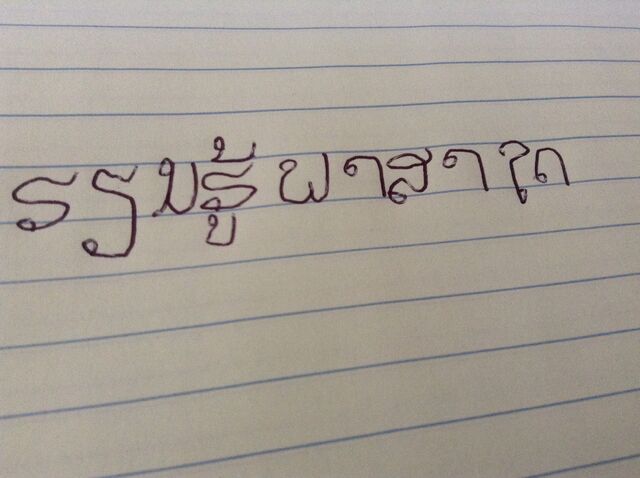 ຮຽນຮູ້ ພາສາ